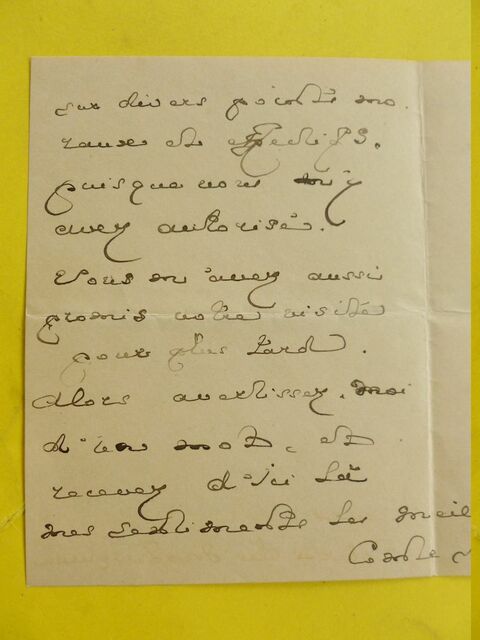 sur divers points mo
raux et effectifs.
puisque vous m'y
avez autorisé.
Vous m'avez aussi
promis votre visite
pour plus tard.
Alors avertissez-moi
d'un mot, et
recevez d'ici là
mes sentiments les meil
Comte